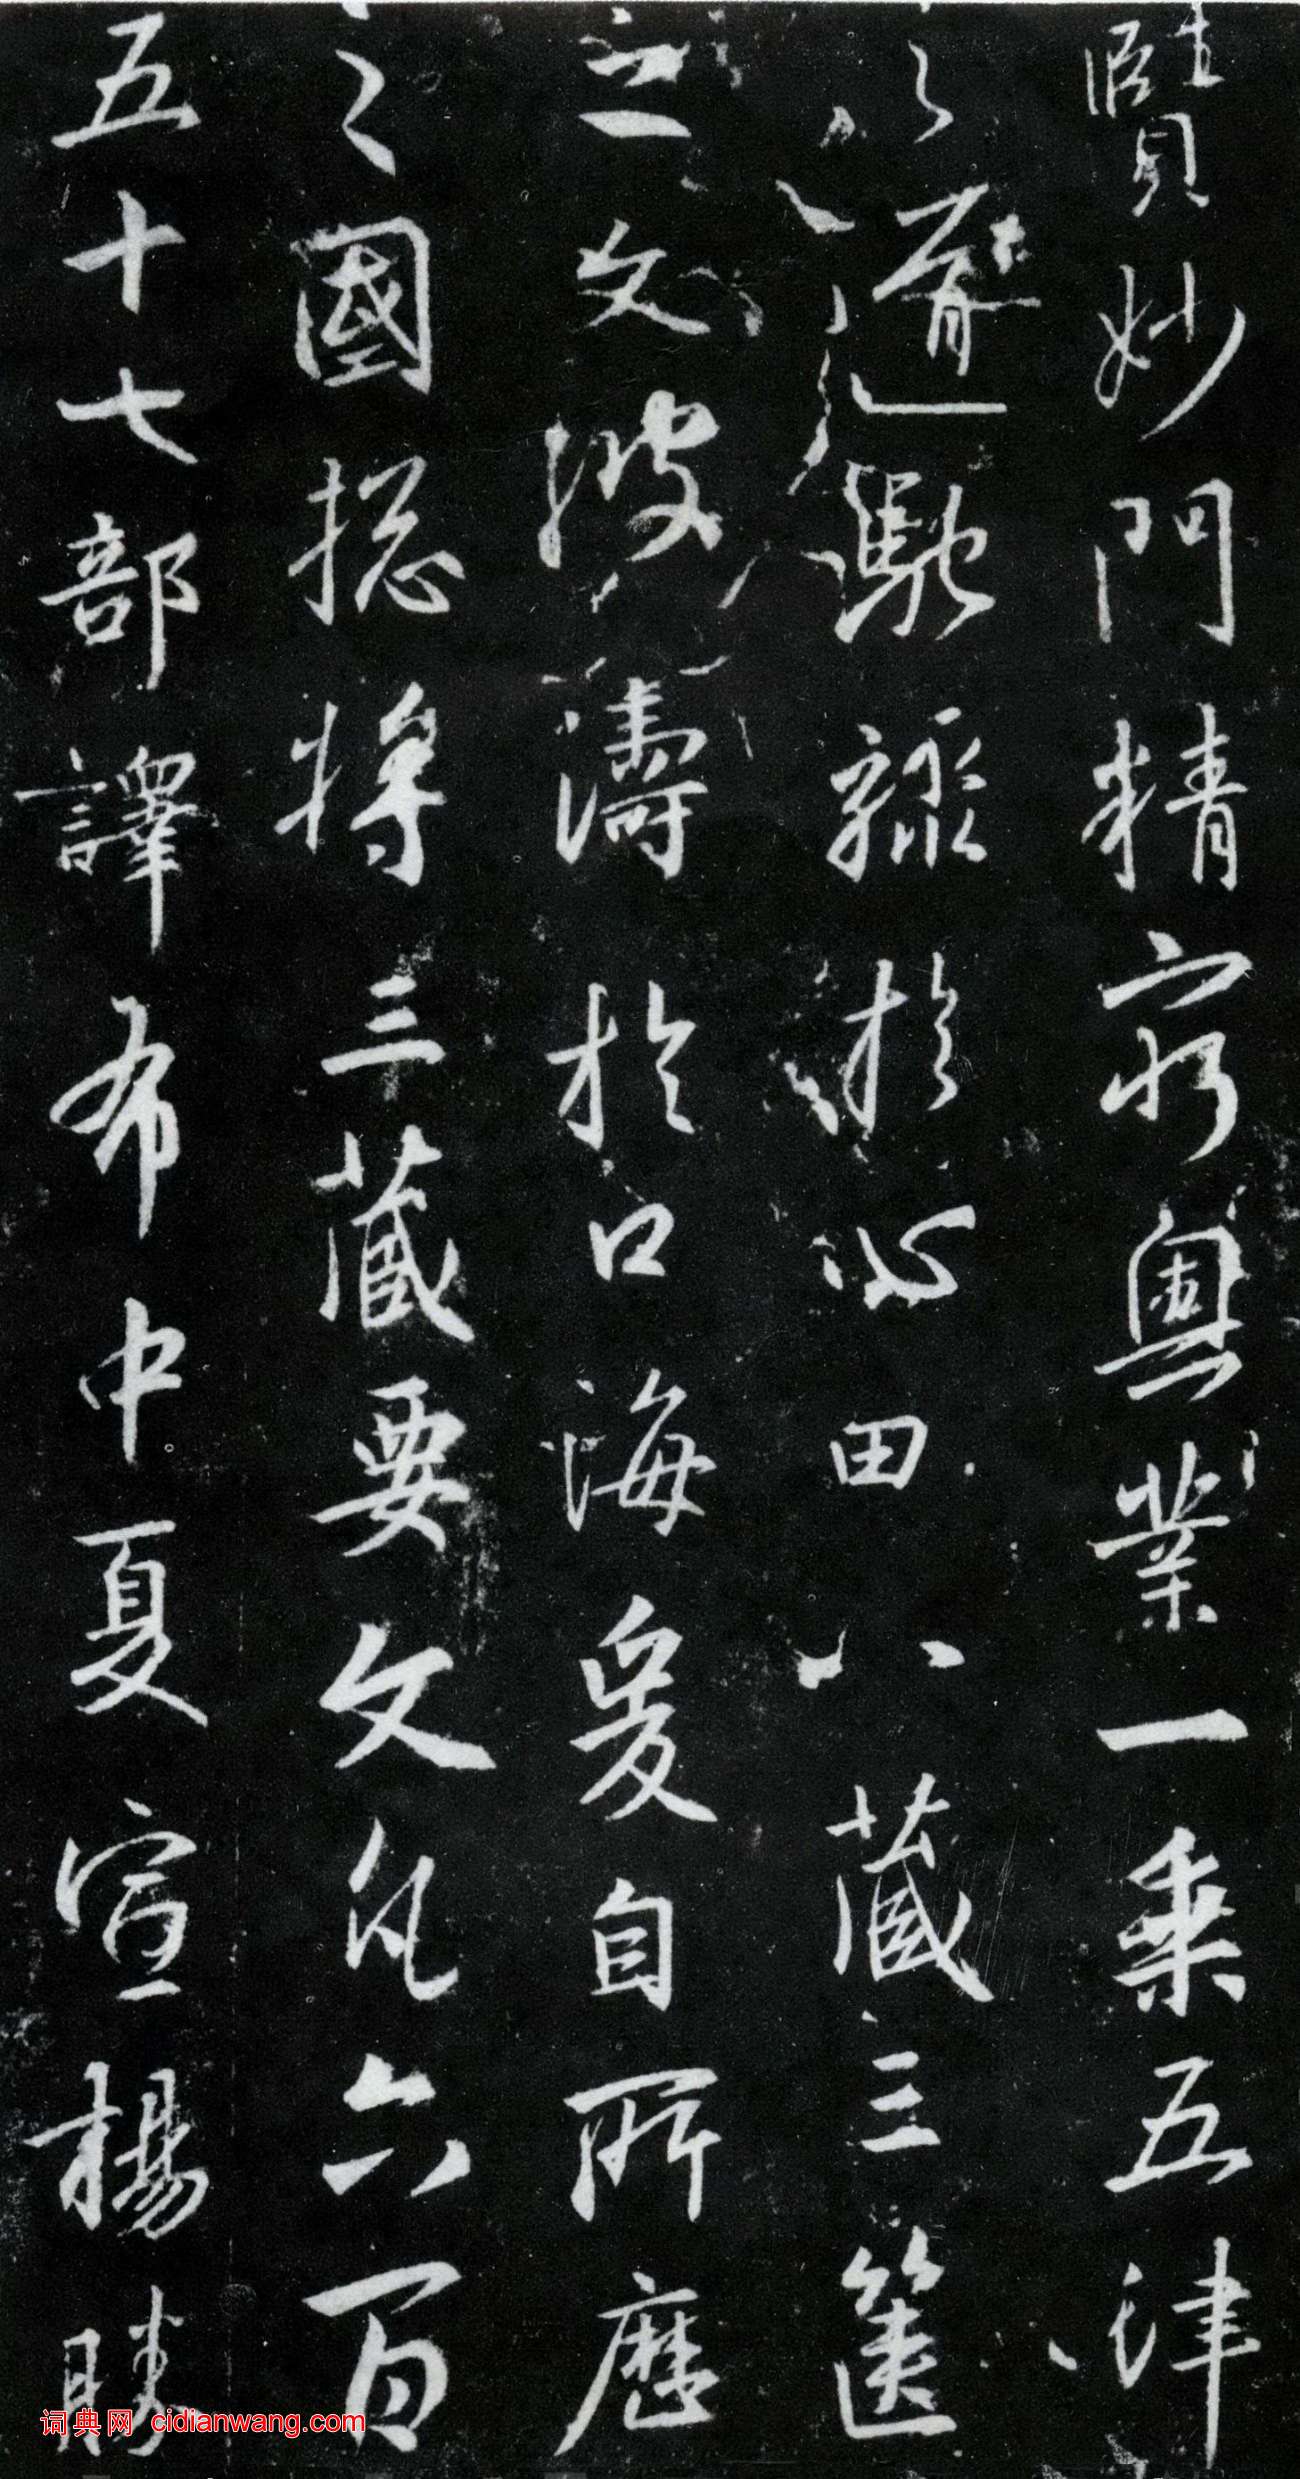 賢妙門精窮奧業一乘五律
之道馳驟於心田八藏三篋
之文波濤於口海爰自所歷
之國揔將三藏要文凡六百
五十七部譯布中夏宣楊勝
词典网 cidianwang.com